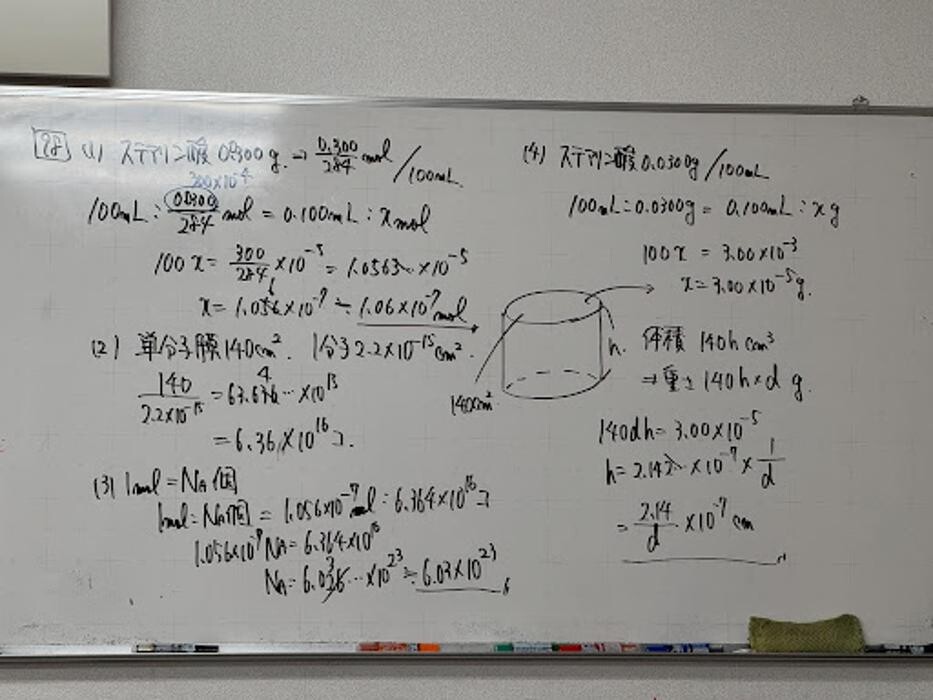 98 (1) ステアリン酸 0.0300g. → 0.300/284 mol /100mL
300×10⁻⁴
100mL : 0.0300/284 mol = 0.100mL : x mol
100x = 300/284 ×10⁻⁵ = 1.0563… ×10⁻⁵
x = 1.056×10⁻⁷ ≒ 1.06×10⁻⁷ mol
(2) 単分子膜 140cm². 1分子 2.2×10⁻¹⁵ cm².
140/2.2×10⁻¹⁵ = 63.636… ×10¹⁵
4
= 6.36×10¹⁶コ.
(3) 1mol = NA個
1mol : NA個 = 1.056×10⁻⁷mol : 6.364×10¹⁶コ
1.056×10⁻⁷ NA = 6.364×10¹⁶
NA = 6.026… ×10²³ ≒ 6.03×10²³
3
(4) ステアリン酸 0.0300g/100mL
100mL : 0.0300g = 0.100mL : x g
100x = 3.00×10⁻³
x = 3.00×10⁻⁵g.
h.
140cm²
体積 140h cm³
→ 重さ 140h×d g.
140dh = 3.00×10⁻⁵
h = 2.142… ×10⁻⁷ × 1/d
= 2.14/d ×10⁻⁷ cm